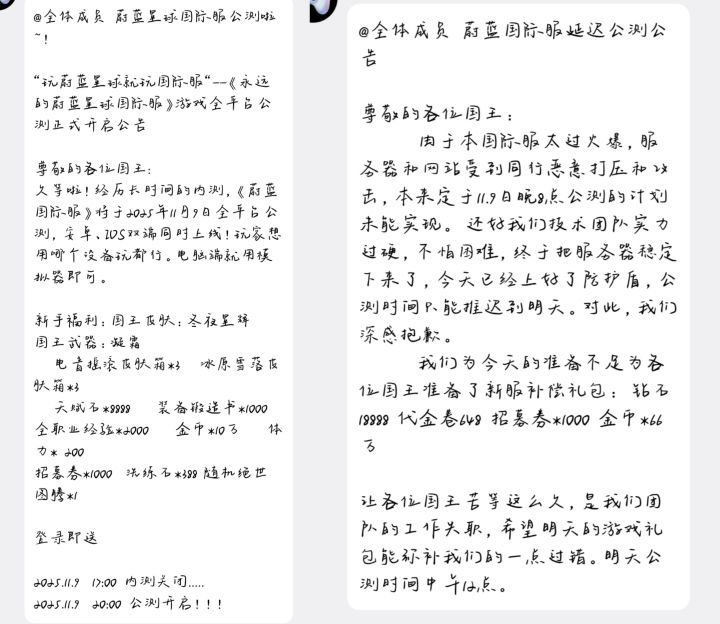 @全体成员 蔚蓝星球国际服公测啦
~!
“玩蔚蓝星球就玩国际服“--《永远
的蔚蓝星球国际服》游戏全平台公
测正式开启公告
尊敬的各位国王:
久等啦!经历长时间的内测,《蔚蓝
国际服》将于2025年11月9日全平台公
测,安卓、IOS双端同时上线!玩家想
用哪个设备玩都行。电脑端就用模
拟器即可。
新手福利:国王皮肤:冬夜星辉
国王武器:凝霜
电音摇滚皮肤箱*3 冰原雪落皮
肤箱*3
天赋石*8888 装备锻造书*1000
全职业经验*2000 金币*10万 体
力* 200
招募券*1000 洗练石*388 随机绝世
图腾*1
登录即送
2025.11.9 17:00 内测关闭.....
2025.11.9 20:00 公测开启!!!
@全体成员 蔚蓝国际服延迟公测公
告
尊敬的各位国王:
由于本国际服太过火爆,服
务器和网站受到同行恶意打压和攻
击,本来定于11.9日晚8点公测的计划
未能实现。还好我们技术团队实力
过硬,不怕困难,终于把服务器稳定
下来了,今天已经上好了防护盾,公
测时间只能推迟到明天。对此,我们
深感抱歉。
我们为今天的准备不足为各
位国王准备了新服补偿礼包:钻石
18888 代金卷648 招募券*1000 金币*66
万
让各位国王苦等这么久,是我们团
队的工作失职,希望明天的游戏礼
包能弥补我们的一点过错。明天公
测时间中午12点。